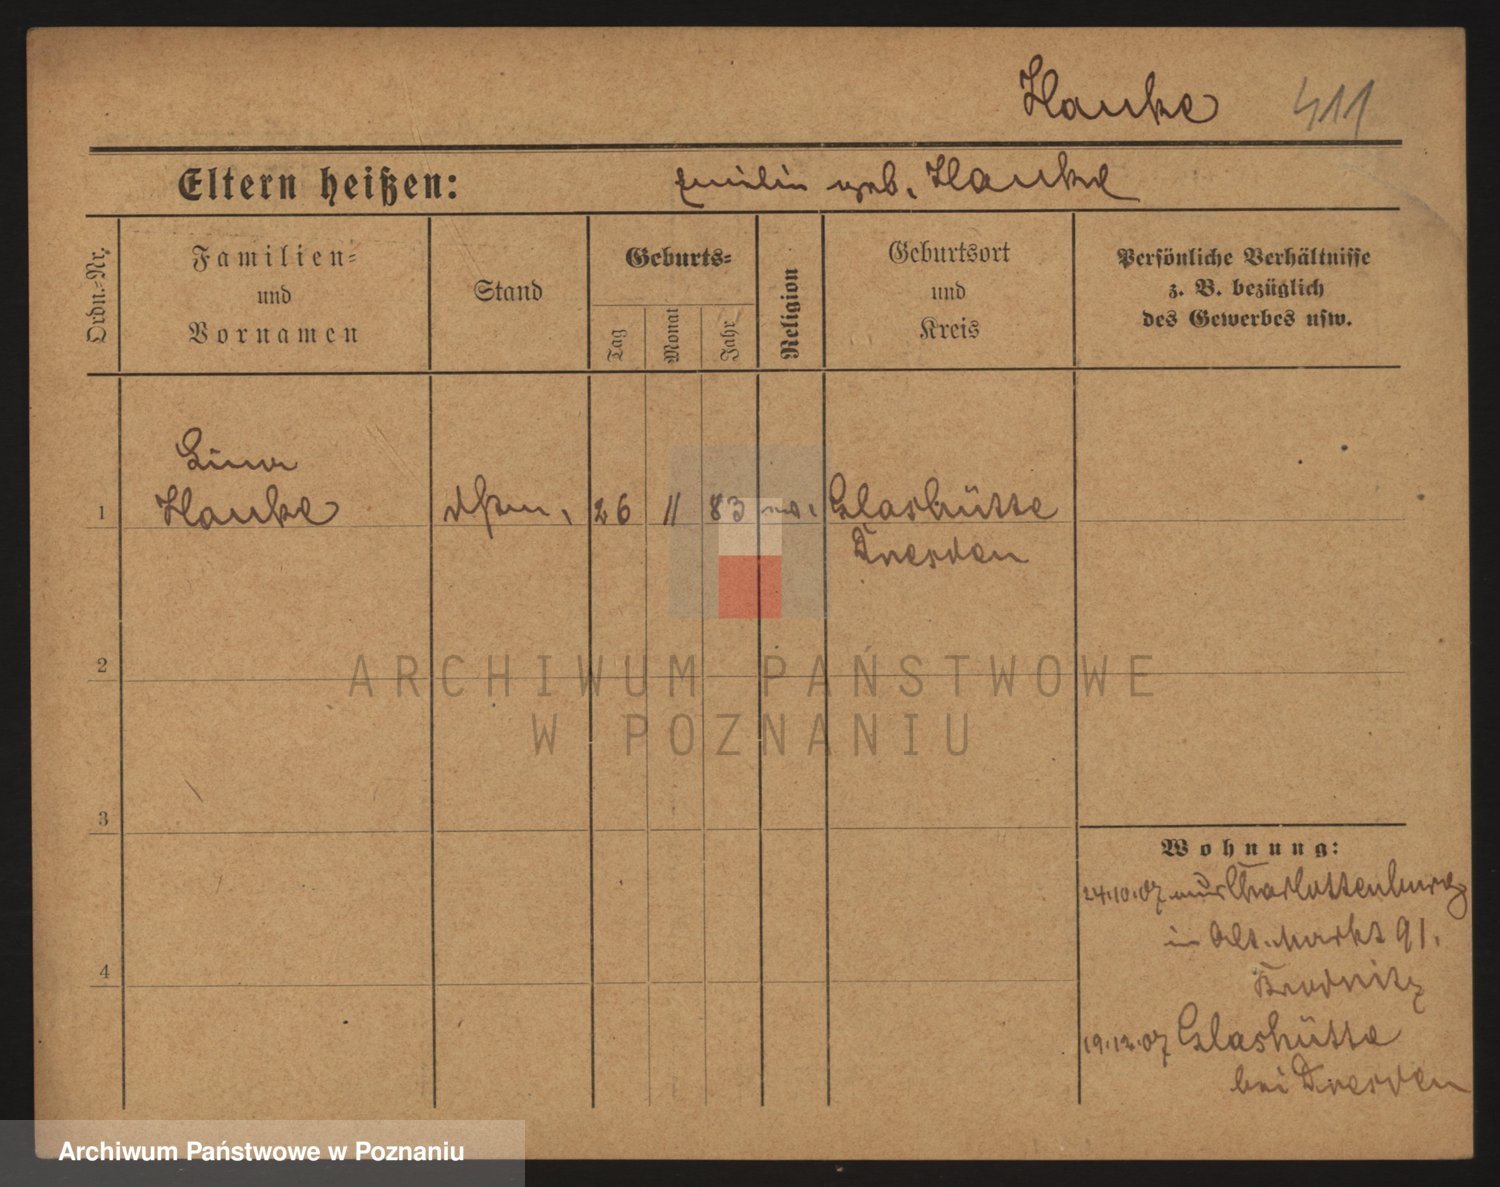 Hanke 411
Eltern heißen: Emilie geb. Hanke
Ordn.-Nr.
Familien-
und
Vornamen
Stand
Geburts-
Tag
Monat
Jahr
Religion
Geburtsort
und
Kreis
Persönliche Verhältnisse
z. B. bezüglich
des Gewerbes usw.
Lina
1 Hanke 26 11 83 ev. Glashütte
Dresden
2
3
4
ARCHIWUM PAŃSTWOWE
W POZNANIU
Wohnung:
24.10.07 aus Charlottenburg
in Alt. Markt 91.
19.12.07 Glashütte
bei Dresden
Archiwum Państwowe w Poznaniu